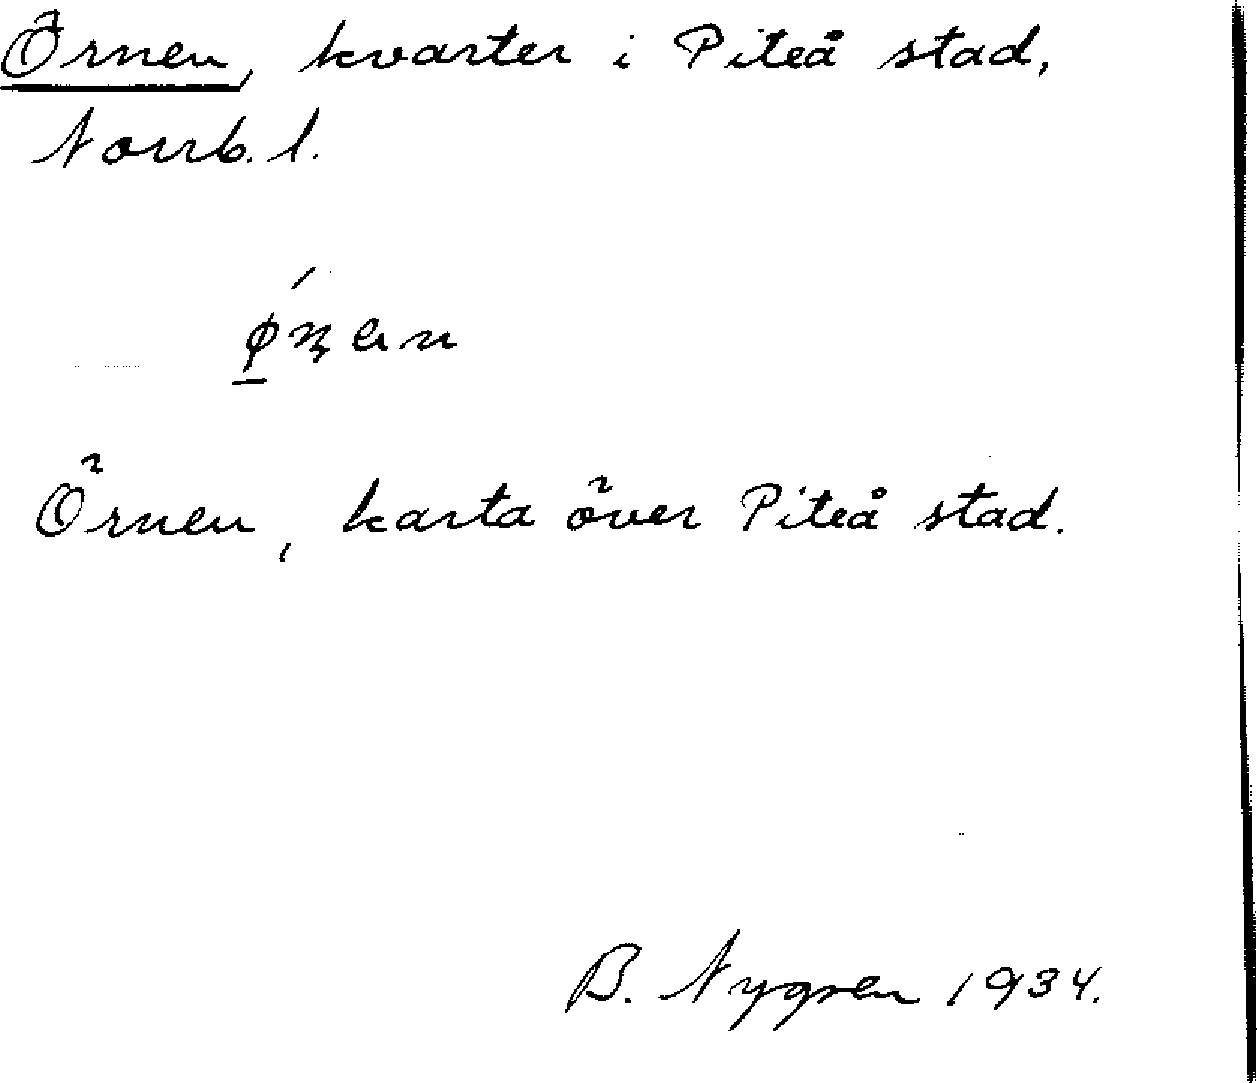 Örnen, kvarter i Piteå stad,
Norrb. l.
Örnen, karta över Piteå stad.
B. Nygren 1934.